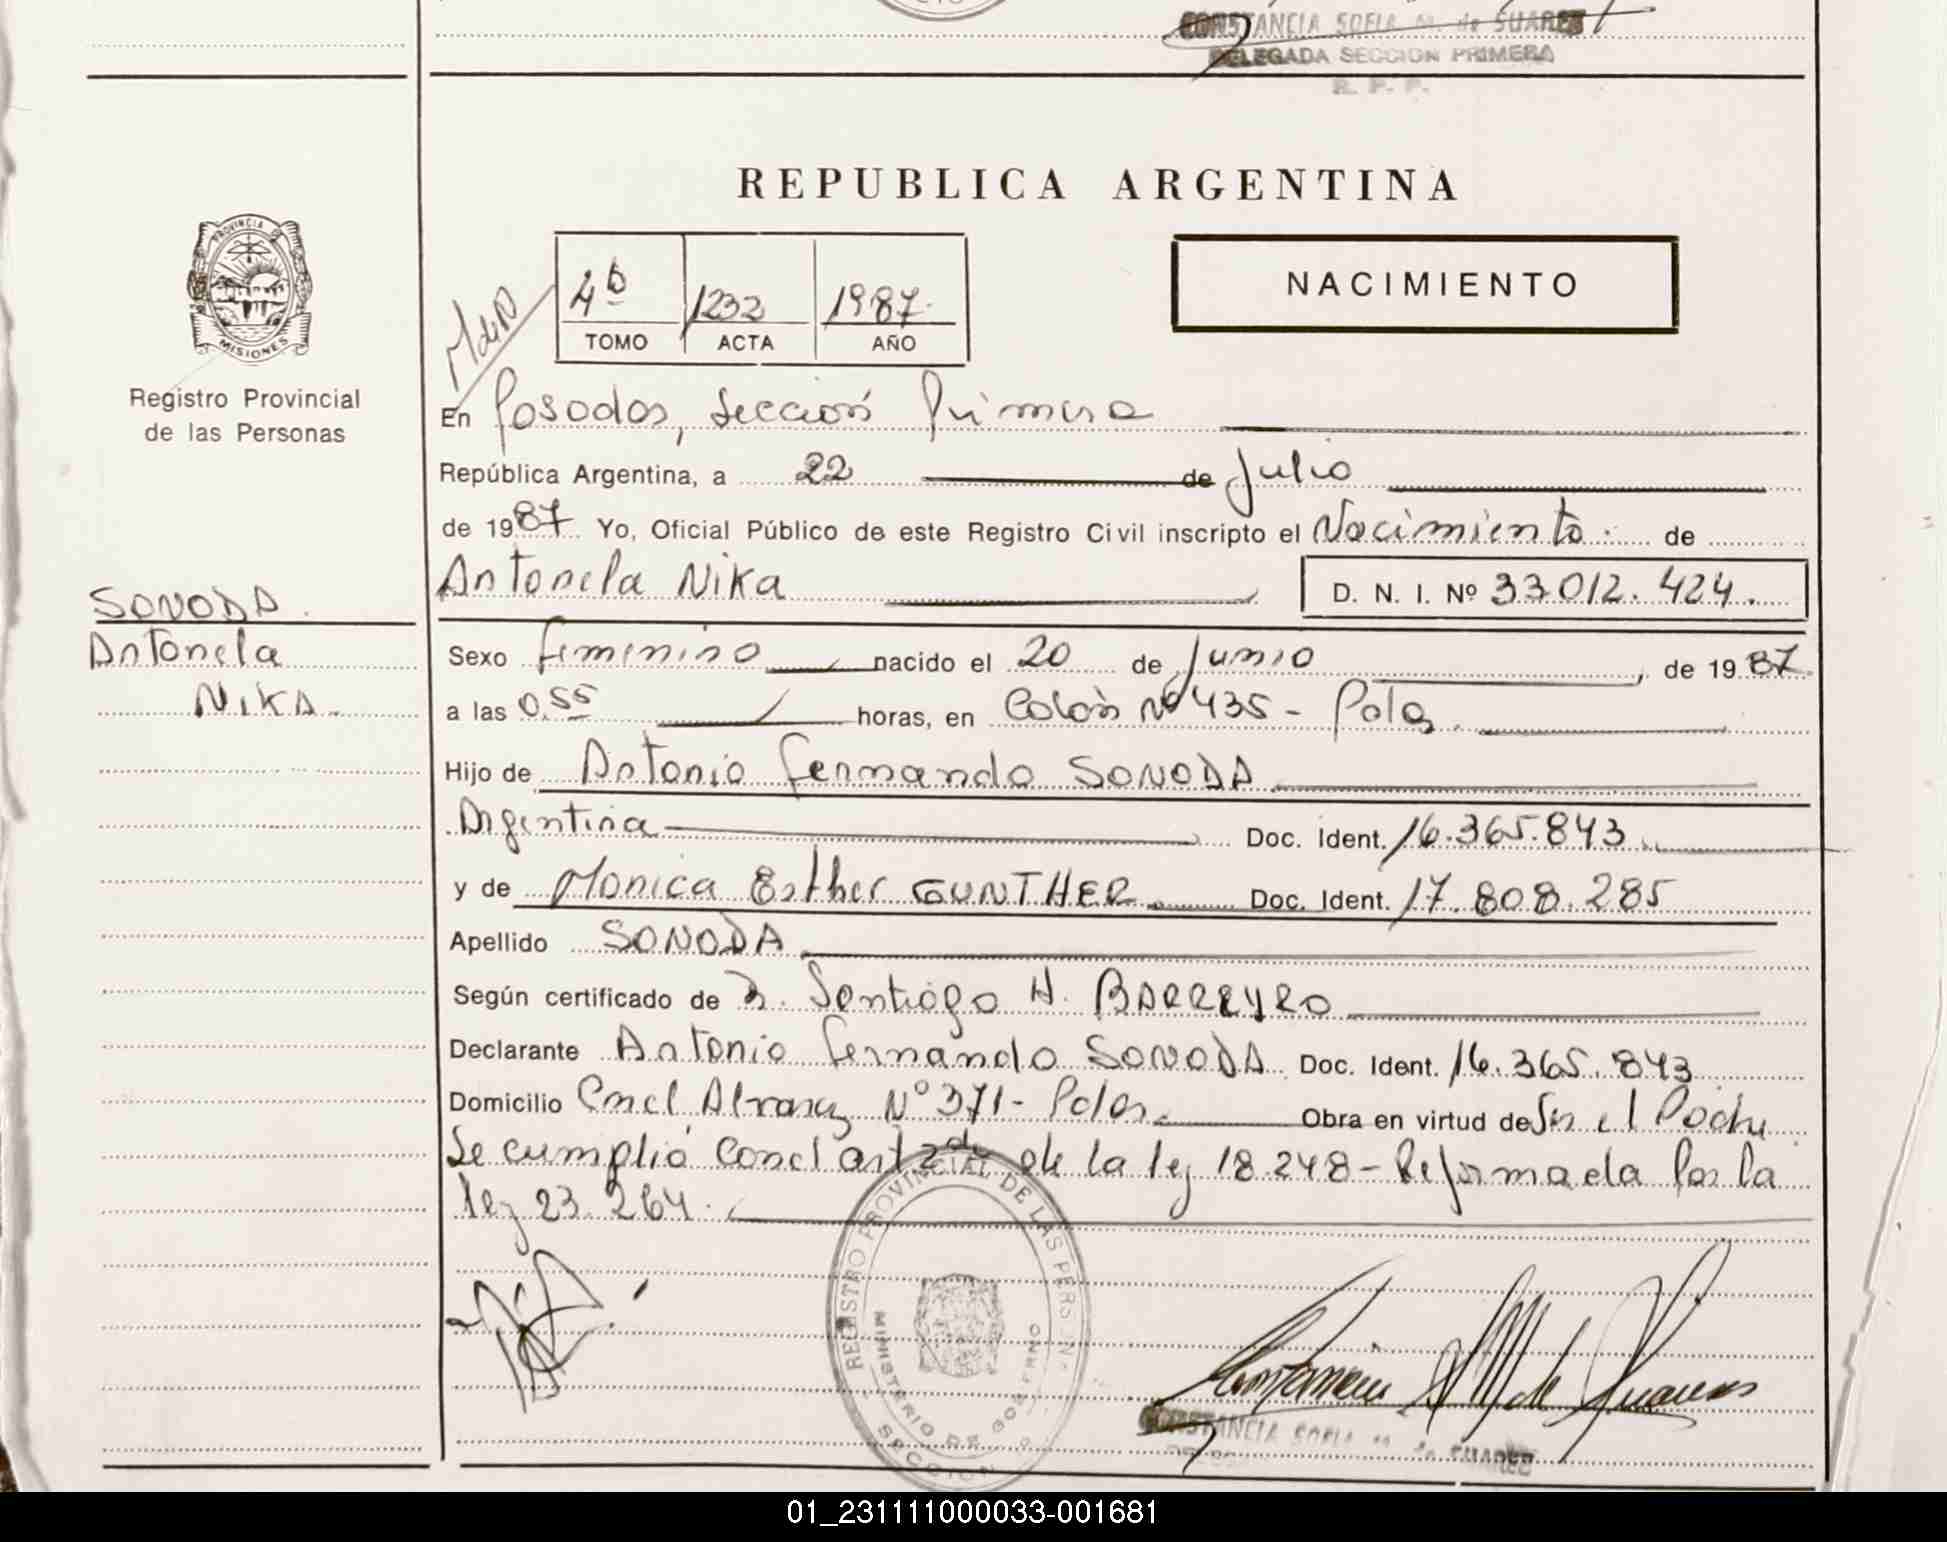 CONSTANCIA SOFIA M. de SUAREZ
DELEGADA SECCION PRIMERA
R. P. P.
REPUBLICA ARGENTINA
PROVINCIA DE
MISIONES
Registro Provincial
de las Personas
4º 1232 1987
TOMO ACTA AÑO
NACIMIENTO
En Posadas, Sección Primera
República Argentina, a 22 de Julio
de 1987 Yo, Oficial Público de este Registro Civil inscripto el Nacimiento. de
Antonela Nika D. N. I. Nº 33.012.424.
SONODA.
Antonela
NIKA.
Sexo femenino nacido el 20 de Junio, de 1987
a las 0,55 horas, en Colón Nº 435 - Pdas.
Hijo de Antonio Fernando SONODA
Argentina Doc. Ident. 16.365.843
y de Monica Esther GUNTHER Doc. Ident. 17.808.285
Apellido SONODA
Según certificado de D. Santiago H. BARREYRO
Declarante Antonio Fernando SONODA Doc. Ident. 16.365.843
Domicilio Cnel Alvarez Nº 371 - Pdas. Obra en virtud de Ser el Padre
Se cumplió con el art 2do de la ley 18.248 - Reformada Por la
ley 23.264.
REGISTRO PROVINCIAL DE LAS PERSONAS
MINISTERIO DE GOBIERNO
SECCION
Constancia S M de Suarez
CONSTANCIA SOFIA M. de SUAREZ
01_231111000033-001681